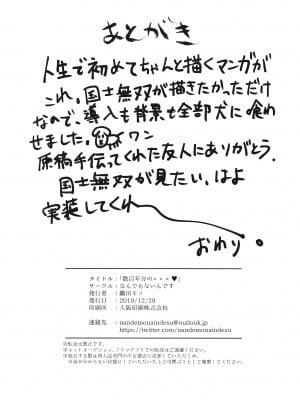 あとがき
人生で初めてちゃんと描くマンガが
これ。国士無双が描きたかっただけ
なので、導入も背景も全部犬に喰わ
せました。イワン
原稿手伝ってくれた友人にありがとう。
国士無双が見たい、はよ
実装してくれー
おわり。
タイトル：「数百年分の×××♥」
サークル：なんでもないんです
発行者：鎌田モノ
発行日：2019/12/29
印刷所：大阪印刷株式会社
連絡先：nandemonaindesu@outlook.jp
https://twitter.com/nandemonaindesu
※転売は禁止です。
※ネットオークション、フリマアプリでの転売はご遠慮ください。